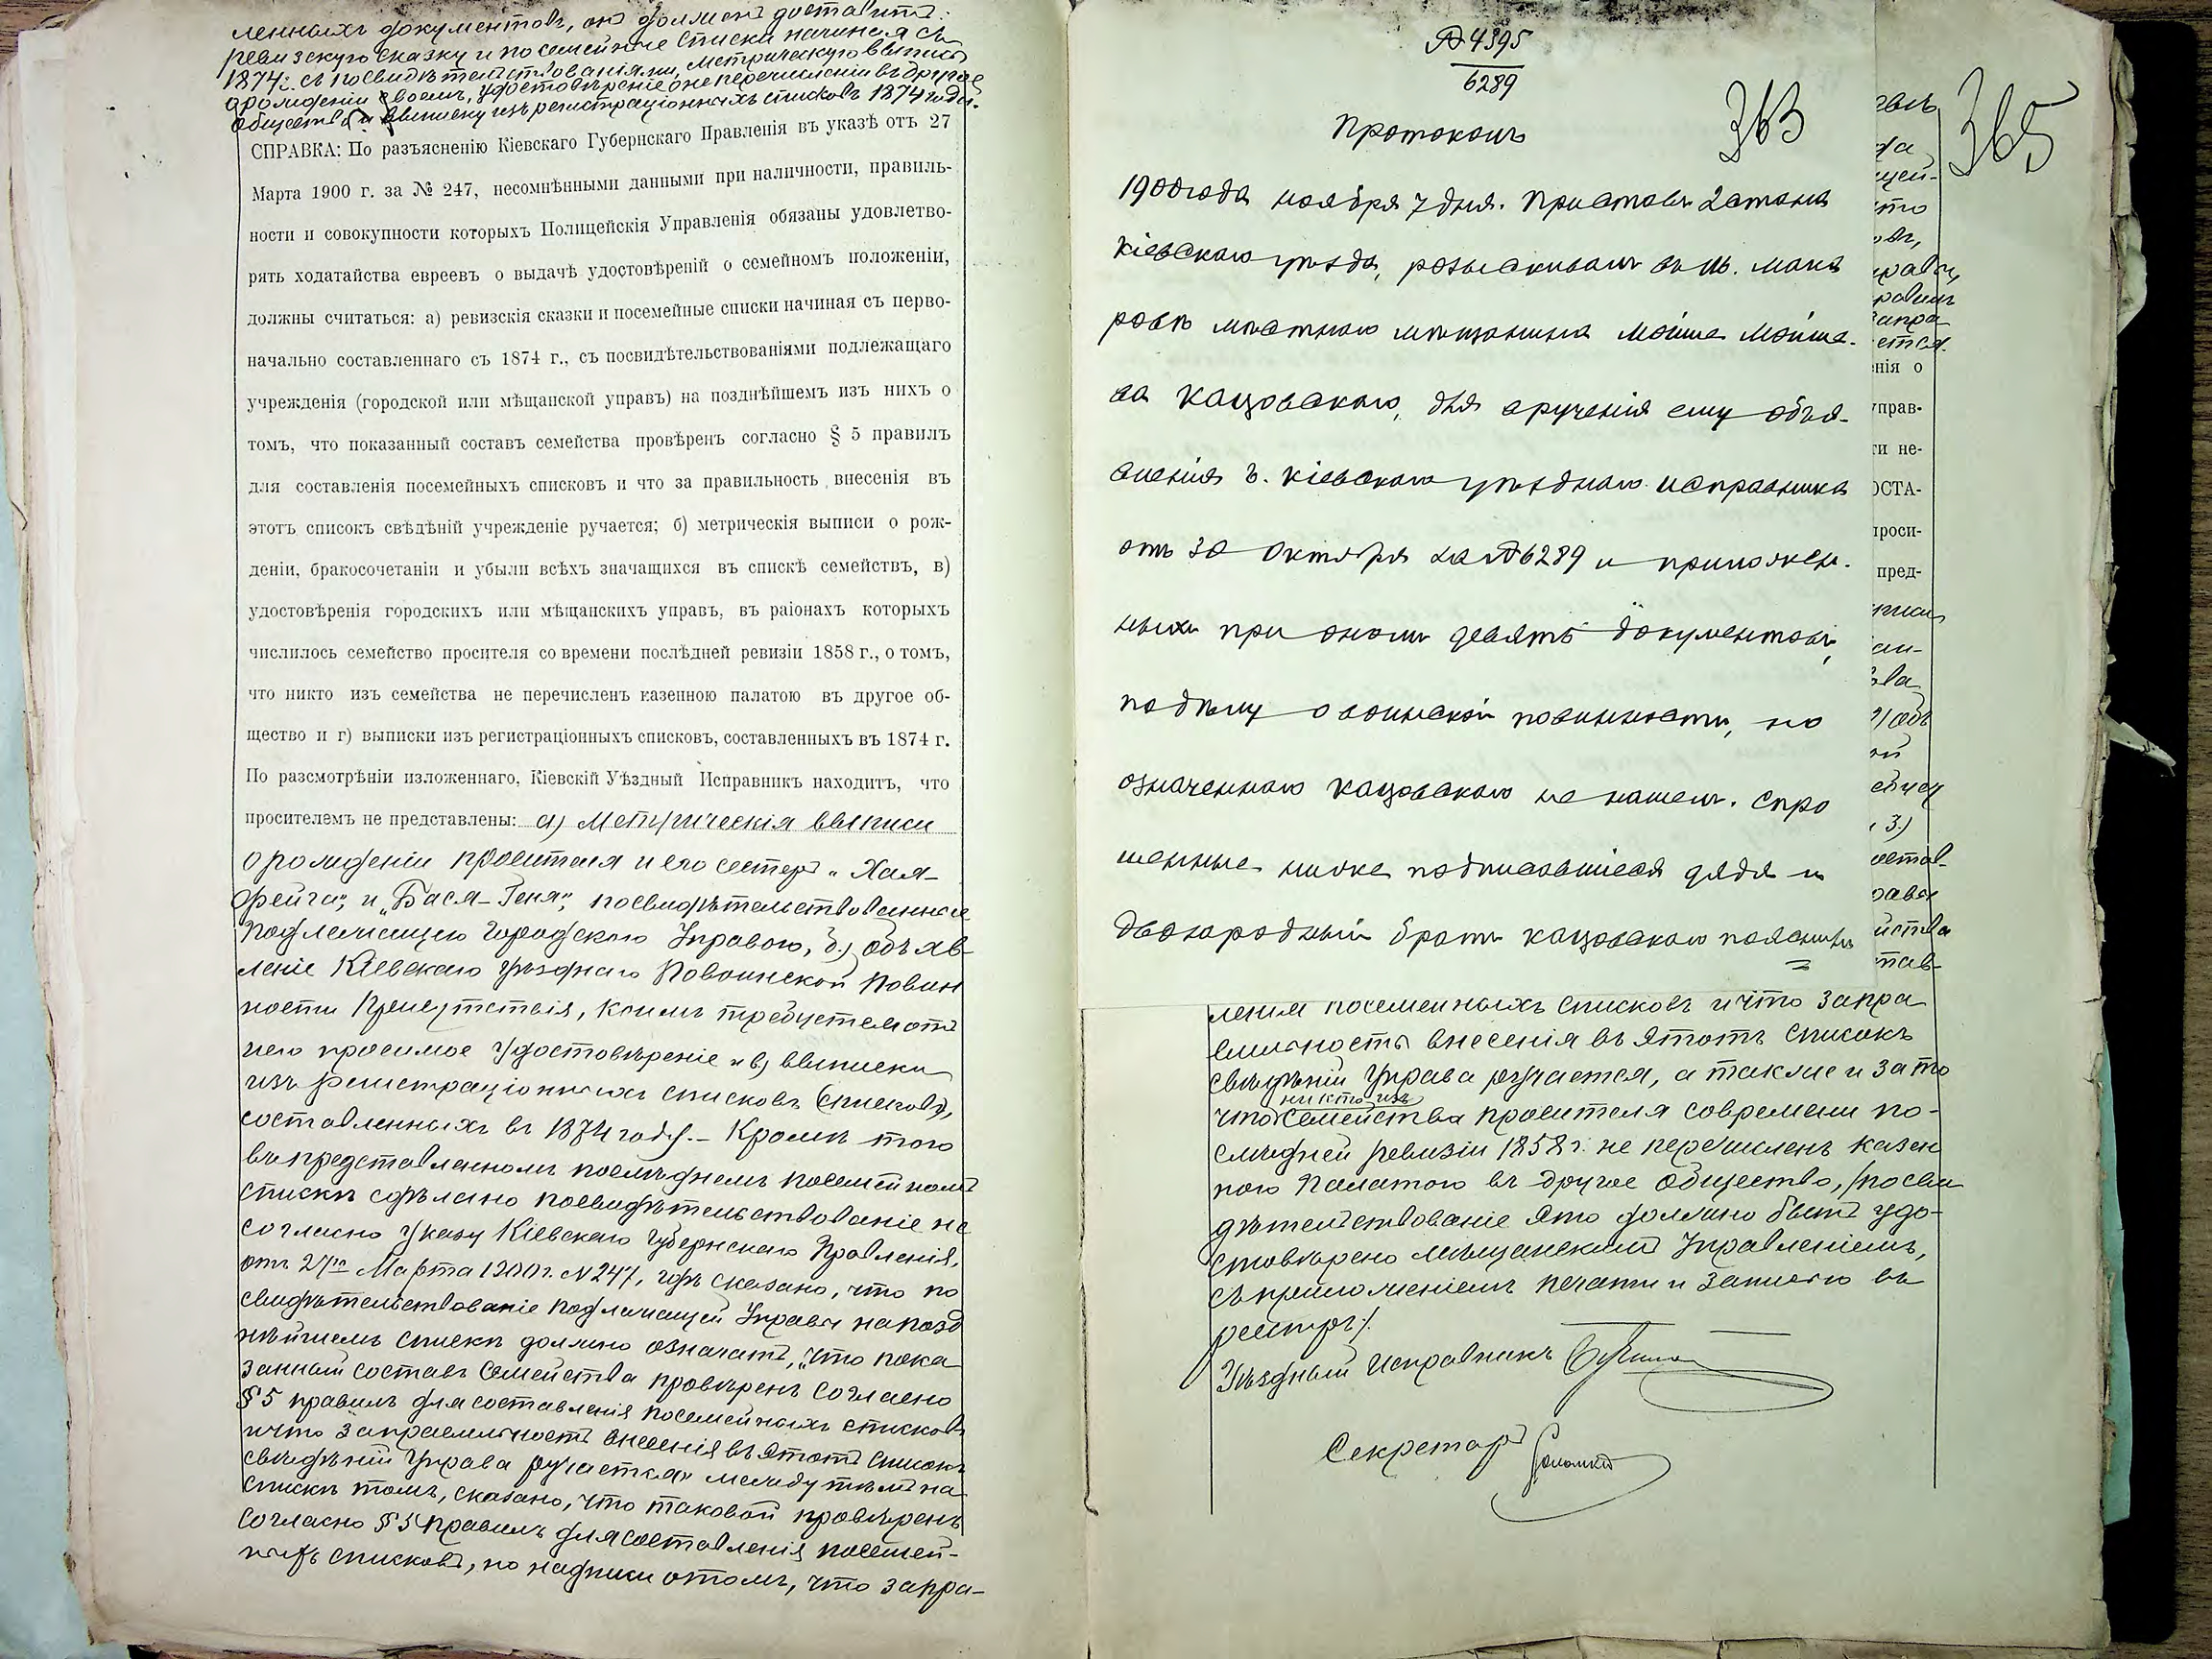 ленныхъ документовъ, онъ долженъ доставить:
ревизскую сказку и посемейные списки начиная съ
1874 г. съ посвидѣтельствованіями, метрическую выпись
о рожденіи своемъ, удостовѣреніе о неперечисленіи въ другія
общества и выписку изъ регистраціонныхъ списковъ 1874 года.
СПРАВКА: По разъясненію Кіевскаго Губернскаго Правленія въ указѣ отъ 27
Марта 1900 г. за № 247, несомнѣнными данными при наличности, правиль-
ности и совокупности которыхъ Полицейскія Управленія обязаны удовлетво-
рять ходатайства евреевъ о выдачѣ удостовѣреній о семейномъ положеніи,
должны считаться: а) ревизскія сказки и посемейные списки начиная съ перво-
начально составленнаго съ 1874 г., съ посвидѣтельствованіями подлежащаго
учрежденія (городской или мѣщанской управъ) на позднѣйшемъ изъ нихъ о
томъ, что показанный составъ семейства провѣренъ согласно § 5 правилъ
для составленія посемейныхъ списковъ и что за правильность внесенія въ
этотъ списокъ свѣдѣній учрежденіе ручается; б) метрическія выписи о рож-
деніи, бракосочетаніи и убыли всѣхъ значащихся въ спискѣ семействъ, в)
удостовѣренія городскихъ или мѣщанскихъ управъ, въ раіонахъ которыхъ
числилось семейство просителя со времени послѣдней ревизіи 1858 г., о томъ,
что никто изъ семейства не перечисленъ казенною палатою въ другое об-
щество и г) выписки изъ регистраціонныхъ списковъ, составленныхъ въ 1874 г.
По разсмотрѣніи изложеннаго, Кіевскій Уѣздный Исправникъ находитъ, что
просителемъ не представлены: а) Метрическія выписи
о рожденіи просителя и его сестеръ „Хая-
Фейга“, и „Бася-Геня“, посвидѣтельствованные
подлежащею Городскою Управою, б) объяв-
леніе Кіевскаго Уѣзднаго По воинской повин
ности Присутствія, коимъ требуется отъ
него просимое удостовѣреніе и в) выписки
изъ регистраціонныхъ списковъ (списковъ),
составленныхъ въ 1874 году. – Кромѣ того
въ представленномъ послѣднемъ посемейномъ
спискѣ сдѣлано посвидѣтельствованіе не
согласно указу Кіевскаго Губернскаго Правленія,
отъ 27го Марта 1900 г. № 247, гдѣ сказано, что по
свидѣтельствованіе подлежащей Управы на позд
нѣйшемъ спискѣ должно означать, „что пока
занный составъ семейства провѣренъ согласно
§ 5 правилъ для составленія посемейныхъ списковъ
и что за правильность внесенія въ этотъ списокъ
свѣдѣній Управа ручается“ между тѣмъ на
спискѣ томъ, сказано, что таковой провѣренъ
согласно § 5 правилъ для составленія посемей-
ныхъ списковъ, но надписи о томъ, что за пра-
№ 4395
6289
363
Протоколъ
1900 года ноября 7 дня. Приставъ 2 стана
Кіевскаго уѣзда, розыскивалъ въ м. Мака
ровѣ мѣстнаго мѣщанина Мойше Мойше-
ва Кацовскаго, для врученія ему объя-
вленія г. Кіевскаго уѣзднаго исправника
отъ 30 октября за № 6289 и приложен-
ныхъ при ономъ девять документовъ,
по дѣлу о воинской повинности, но
означеннаго Кацовскаго не нашелъ. Спро
шенные ниже подписавшіеся дядя и
двоюродный братъ Кацовскаго пояснили
365
нія о
управ-
ти не-
ОСТА-
проси-
пред-
ленія посемейныхъ списковъ и что за пра
вильность внесенія въ этотъ списокъ
свѣдѣній Управа ручается, а также и за то
никто изъ
что семейства просителя со времени по-
слѣдней ревизіи 1858 г. не перечисленъ казен
ною Палатою въ другое общество, /посви
дѣтельствованіе это должно быть удо-
стовѣрено мѣщанскимъ Управленіемъ,
съ приложеніемъ печати и записью въ
реестръ/.
Уѣздный Исправникъ
Секретарь